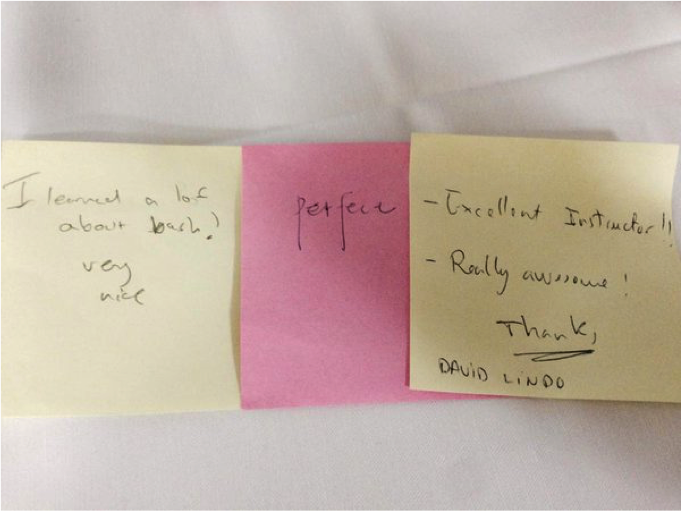 I learned a lot
about bash!
very
nice
perfect
- Excellent Instructor!!
- Really awesome!
Thank,
DAVID LINDO